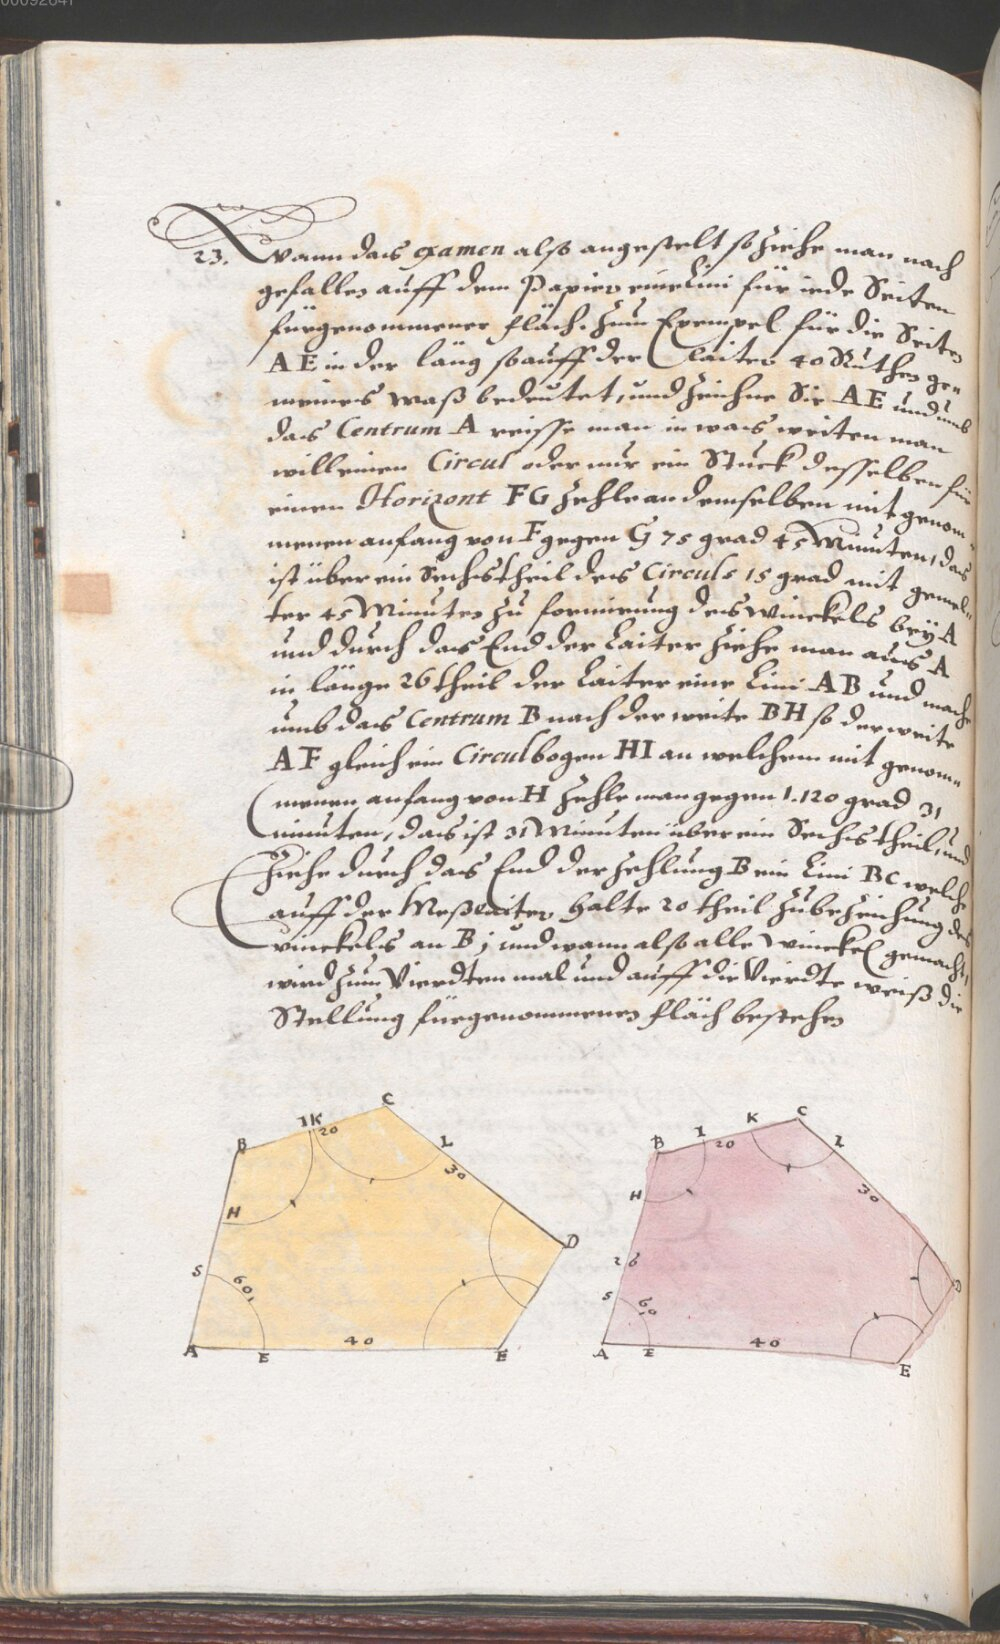 00092641
23. Wann das examen also angestelt so ziehe man nach
gefallen auff dem Papier eine Lini für iede Seiten
fürgenommener fläch. Zum Exempel für die Seiten
AE in der läng so auff der Laiter 40 Ruthen gen
meines maß bedeutet, und zeichne Sie AE und umb
das Centrum A reisse man in was weiten man
will einen Circul oder nur ein Stuck desselben für
einen Horizont FG zehle an demselben mit genom-
menen anfang von F gegen G 75 grad 45 Minuten, das
ist über ein Sechstheil des Circuls 15 grad mit gemel-
ter 45 Minuten zu formirung des winckels bey A
und durch das End der Laiter ziehe man aus A
in länge 26 theil der Laiter eine Lini AB und mache
umb das Centrum B nach der weite BH so der weite
AF gleich ein Circulbogen HI an welchem mit genom-
menen anfang von H zehle man gegen I. 120 grad 31
minuten, das ist 31 Minuten über ein Sechstheil, und
ziehe durch das End der zehlung B ein Lini BC welche
auff der Meßlaiter halte 20 theil zubezeichung des
winckels an B; und wann also alle winckel gemacht,
wird zum Vierdten mal und auff die Vierdte weiß die
Stellung fürgenommenen fläch bestehen
C
IK
20
B
L
30
H
D
S
60
A
E
40
E
C
K
I
20
B
L
H
30
26
D
S
60
A
E
40
E